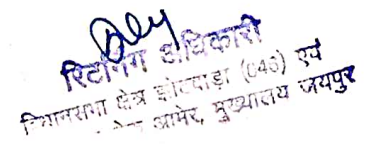 रिटर्निंग अधिकारी
विधानसभा क्षेत्र झोटवाड़ा (046) एवं
आमेर, मुख्यालय जयपुर